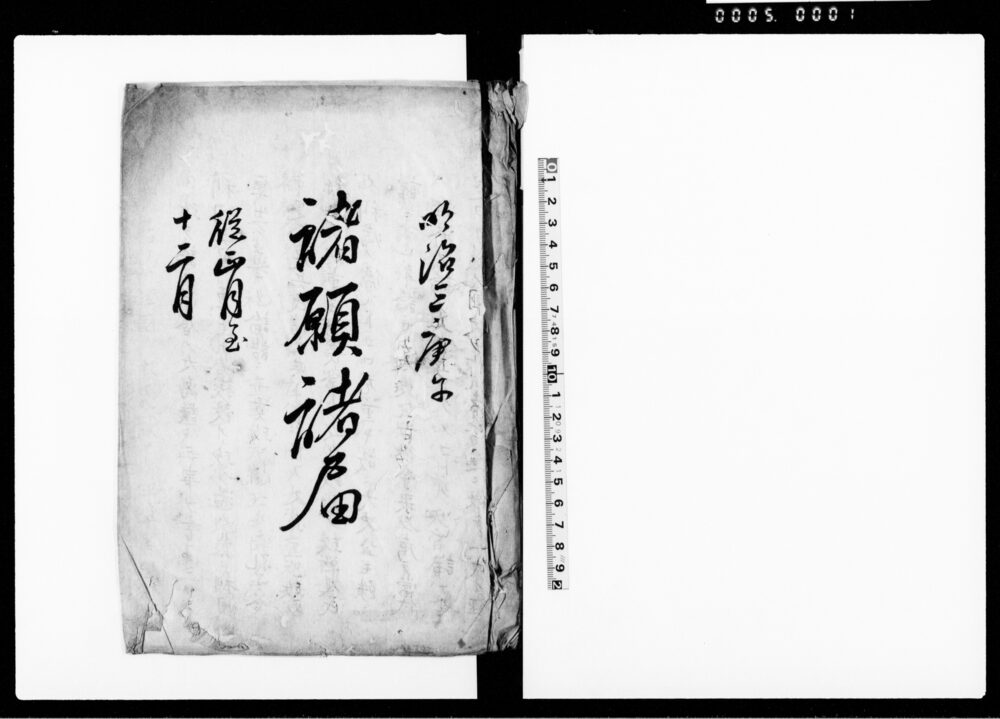 0005. 0001
明治三庚午
諸願諸届
従正月至
十二月
0 1 2 3 4 5 6 7 8 9 10 1 2 3 4 5 6 7 8 9 2